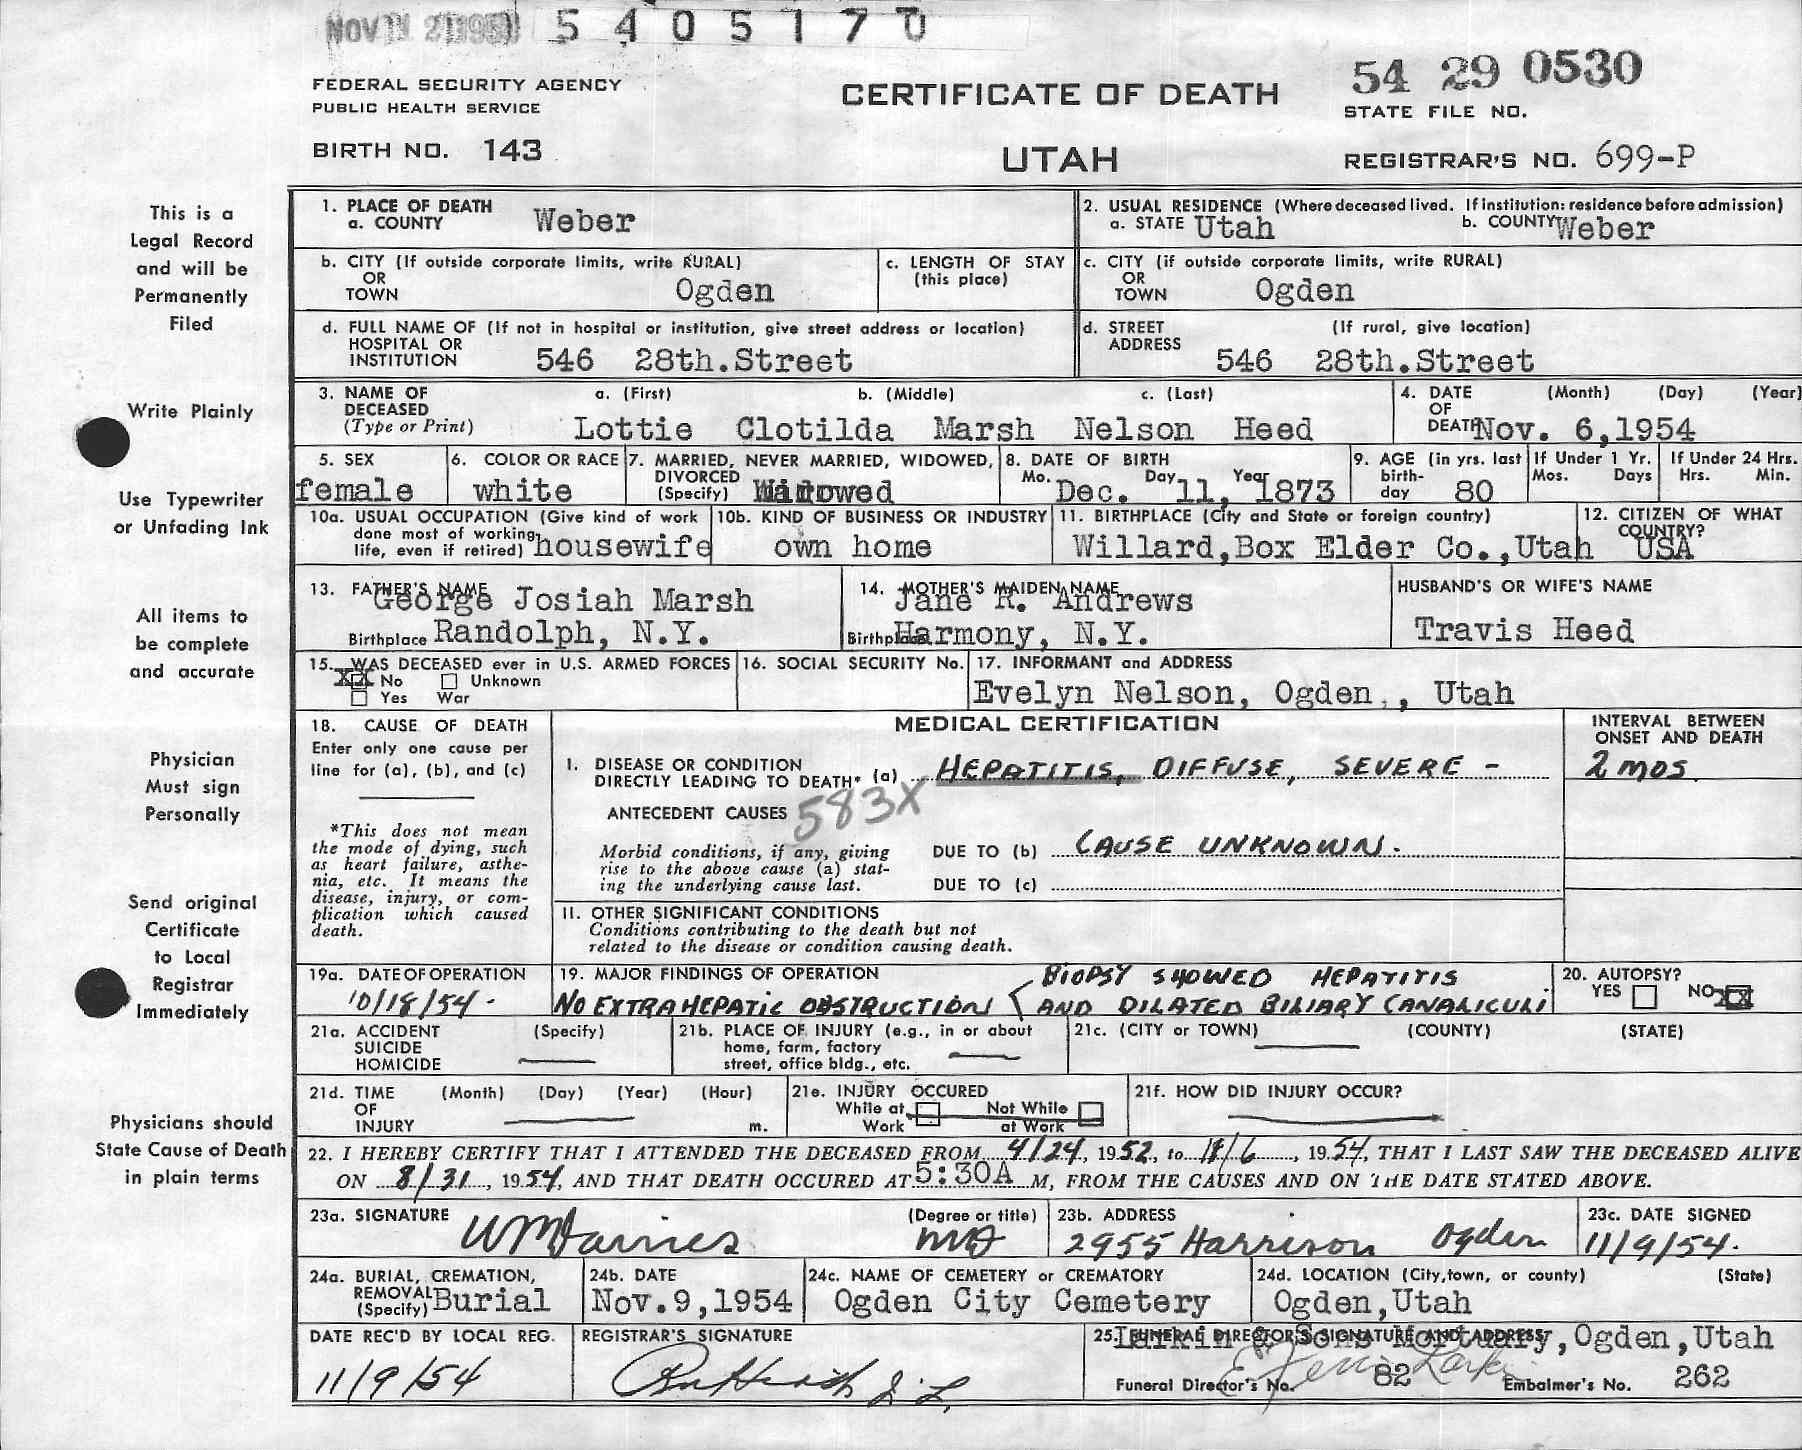 5 4 0 5 1 7 0
FEDERAL SECURITY AGENCY
PUBLIC HEALTH SERVICE
CERTIFICATE OF DEATH
54 29 0530
STATE FILE NO.
BIRTH NO. 143
UTAH
REGISTRAR'S NO. 699-P
This is a
Legal Record
and will be
Permanently
Filed
Write Plainly
Use Typewriter
or Unfading Ink
All items to
be complete
and accurate
Physician
Must sign
Personally
Send original
Certificate
to Local
Registrar
Immediately
Physicians should
State Cause of Death
in plain terms
1. PLACE OF DEATH
a. COUNTY Weber
2. USUAL RESIDENCE (Where deceased lived. If institution: residence before admission)
a. STATE Utah b. COUNTY Weber
b. CITY (If outside corporate limits, write RURAL)
OR
TOWN Ogden
c. LENGTH OF STAY
(this place)
c. CITY (if outside corporate limits, write RURAL)
OR
TOWN Ogden
d. FULL NAME OF (If not in hospital or institution, give street address or location)
HOSPITAL OR
INSTITUTION 546 28th.Street
d. STREET (If rural, give location)
ADDRESS 546 28th.Street
3. NAME OF a. (First) b. (Middle) c. (Last)
DECEASED
(Type or Print) Lottie Clotilda Marsh Nelson Heed
4. DATE (Month) (Day) (Year)
OF
DEATH Nov. 6,1954
5. SEX
female
6. COLOR OR RACE
white
7. MARRIED, NEVER MARRIED, WIDOWED,
DIVORCED
(Specify) Widowed
8. DATE OF BIRTH
Mo. Dec. Day 11, Year 1873
9. AGE (in yrs. last
birth-
day 80
If Under 1 Yr.
Mos. Days
If Under 24 Hrs.
Hrs. Min.
10a. USUAL OCCUPATION (Give kind of work
done most of working
life, even if retired) housewife
10b. KIND OF BUSINESS OR INDUSTRY
own home
11. BIRTHPLACE (City and State or foreign country)
Willard,Box Elder Co.,Utah
12. CITIZEN OF WHAT
COUNTRY?
USA
13. FATHER'S NAME
George Josiah Marsh
Birthplace Randolph, N.Y.
14. MOTHER'S MAIDEN NAME
Jane R. Andrews
Birthplace Harmony, N.Y.
HUSBAND'S OR WIFE'S NAME
Travis Heed
15. WAS DECEASED ever in U.S. ARMED FORCES
XX No Unknown
Yes War
16. SOCIAL SECURITY No.
17. INFORMANT and ADDRESS
Evelyn Nelson, Ogden., Utah
18. CAUSE OF DEATH
Enter only one cause per
line for (a), (b), and (c)
*This does not mean
the mode of dying, such
as heart failure, asthe-
nia, etc. It means the
disease, injury, or com-
plication which caused
death.
MEDICAL CERTIFICATION
INTERVAL BETWEEN
ONSET AND DEATH
I. DISEASE OR CONDITION
DIRECTLY LEADING TO DEATH* (a) HEPATITIS, DIFFUSE, SEVERE - 2 mos.
ANTECEDENT CAUSES 583X
Morbid conditions, if any, giving
rise to the above cause (a) stat-
ing the underlying cause last.
DUE TO (b) CAUSE UNKNOWN.
DUE TO (c)
II. OTHER SIGNIFICANT CONDITIONS
Conditions contributing to the death but not
related to the disease or condition causing death.
19a. DATE OF OPERATION
10/18/54-
19. MAJOR FINDINGS OF OPERATION BIOPSY SHOWED HEPATITIS
NO EXTRAHEPATIC OBSTRUCTION AND DILATED BILIARY CANALICULI
20. AUTOPSY?
YES NO XX
21a. ACCIDENT (Specify)
SUICIDE
HOMICIDE
21b. PLACE OF INJURY (e.g., in or about
home, farm, factory
street, office bldg., etc.
21c. (CITY or TOWN) (COUNTY) (STATE)
21d. TIME (Month) (Day) (Year) (Hour)
OF
INJURY m.
21e. INJURY OCCURED
While at Not While
Work at Work
21f. HOW DID INJURY OCCUR?
22. I HEREBY CERTIFY THAT I ATTENDED THE DECEASED FROM 4/24, 1952, to 11/6, 1954, THAT I LAST SAW THE DECEASED ALIVE
ON 8/31, 1954, AND THAT DEATH OCCURED AT 5:30A M, FROM THE CAUSES AND ON THE DATE STATED ABOVE.
23a. SIGNATURE (Degree or title)
MD
23b. ADDRESS
2955 Harrison Ogden
23c. DATE SIGNED
11/9/54.
24a. BURIAL, CREMATION,
REMOVAL
(Specify) Burial
24b. DATE
Nov.9,1954
24c. NAME OF CEMETERY or CREMATORY
Ogden City Cemetery
24d. LOCATION (City,town, or county) (State)
Ogden,Utah
DATE REC'D BY LOCAL REG.
11/9/54
REGISTRAR'S SIGNATURE
25. FUNERAL DIRECTOR'S SIGNATURE AND ADDRESS
Larkin & Sons Mortuary,Ogden,Utah
Funeral Director's No. 82 Embalmer's No. 262